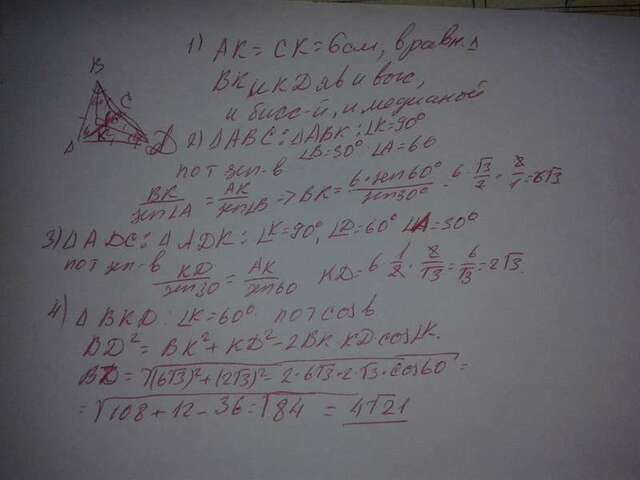 1) AK = CK = 6см, в равн. Δ
BK и KD яв и выс,
и бисс-й, и медианой
B
C
A
K
D
2) ΔABC: ΔABK: ∠K=90°
∠B=30° ∠A=60
по т sin-в
BK/sin∠A = AK/sin∠B => BK = 6·sin60°/sin30° = 6·√3/2·2/1 = 6√3
3) ΔADC: ΔADK: ∠K=90°, ∠D=60° ∠A=30°
по т sin-в
KD/sin30 = AK/sin60 KD = 6·1/2·2/√3 = 6/√3 = 2√3.
4) ΔBKD: ∠K=60° по т cos в
BD² = BK² + KD² - 2BK·KD·cos∠K.
BD = √(6√3)² + (2√3)² - 2·6√3·2·√3·cos60° =
= √108 + 12 - 36 = √84 = 4√21